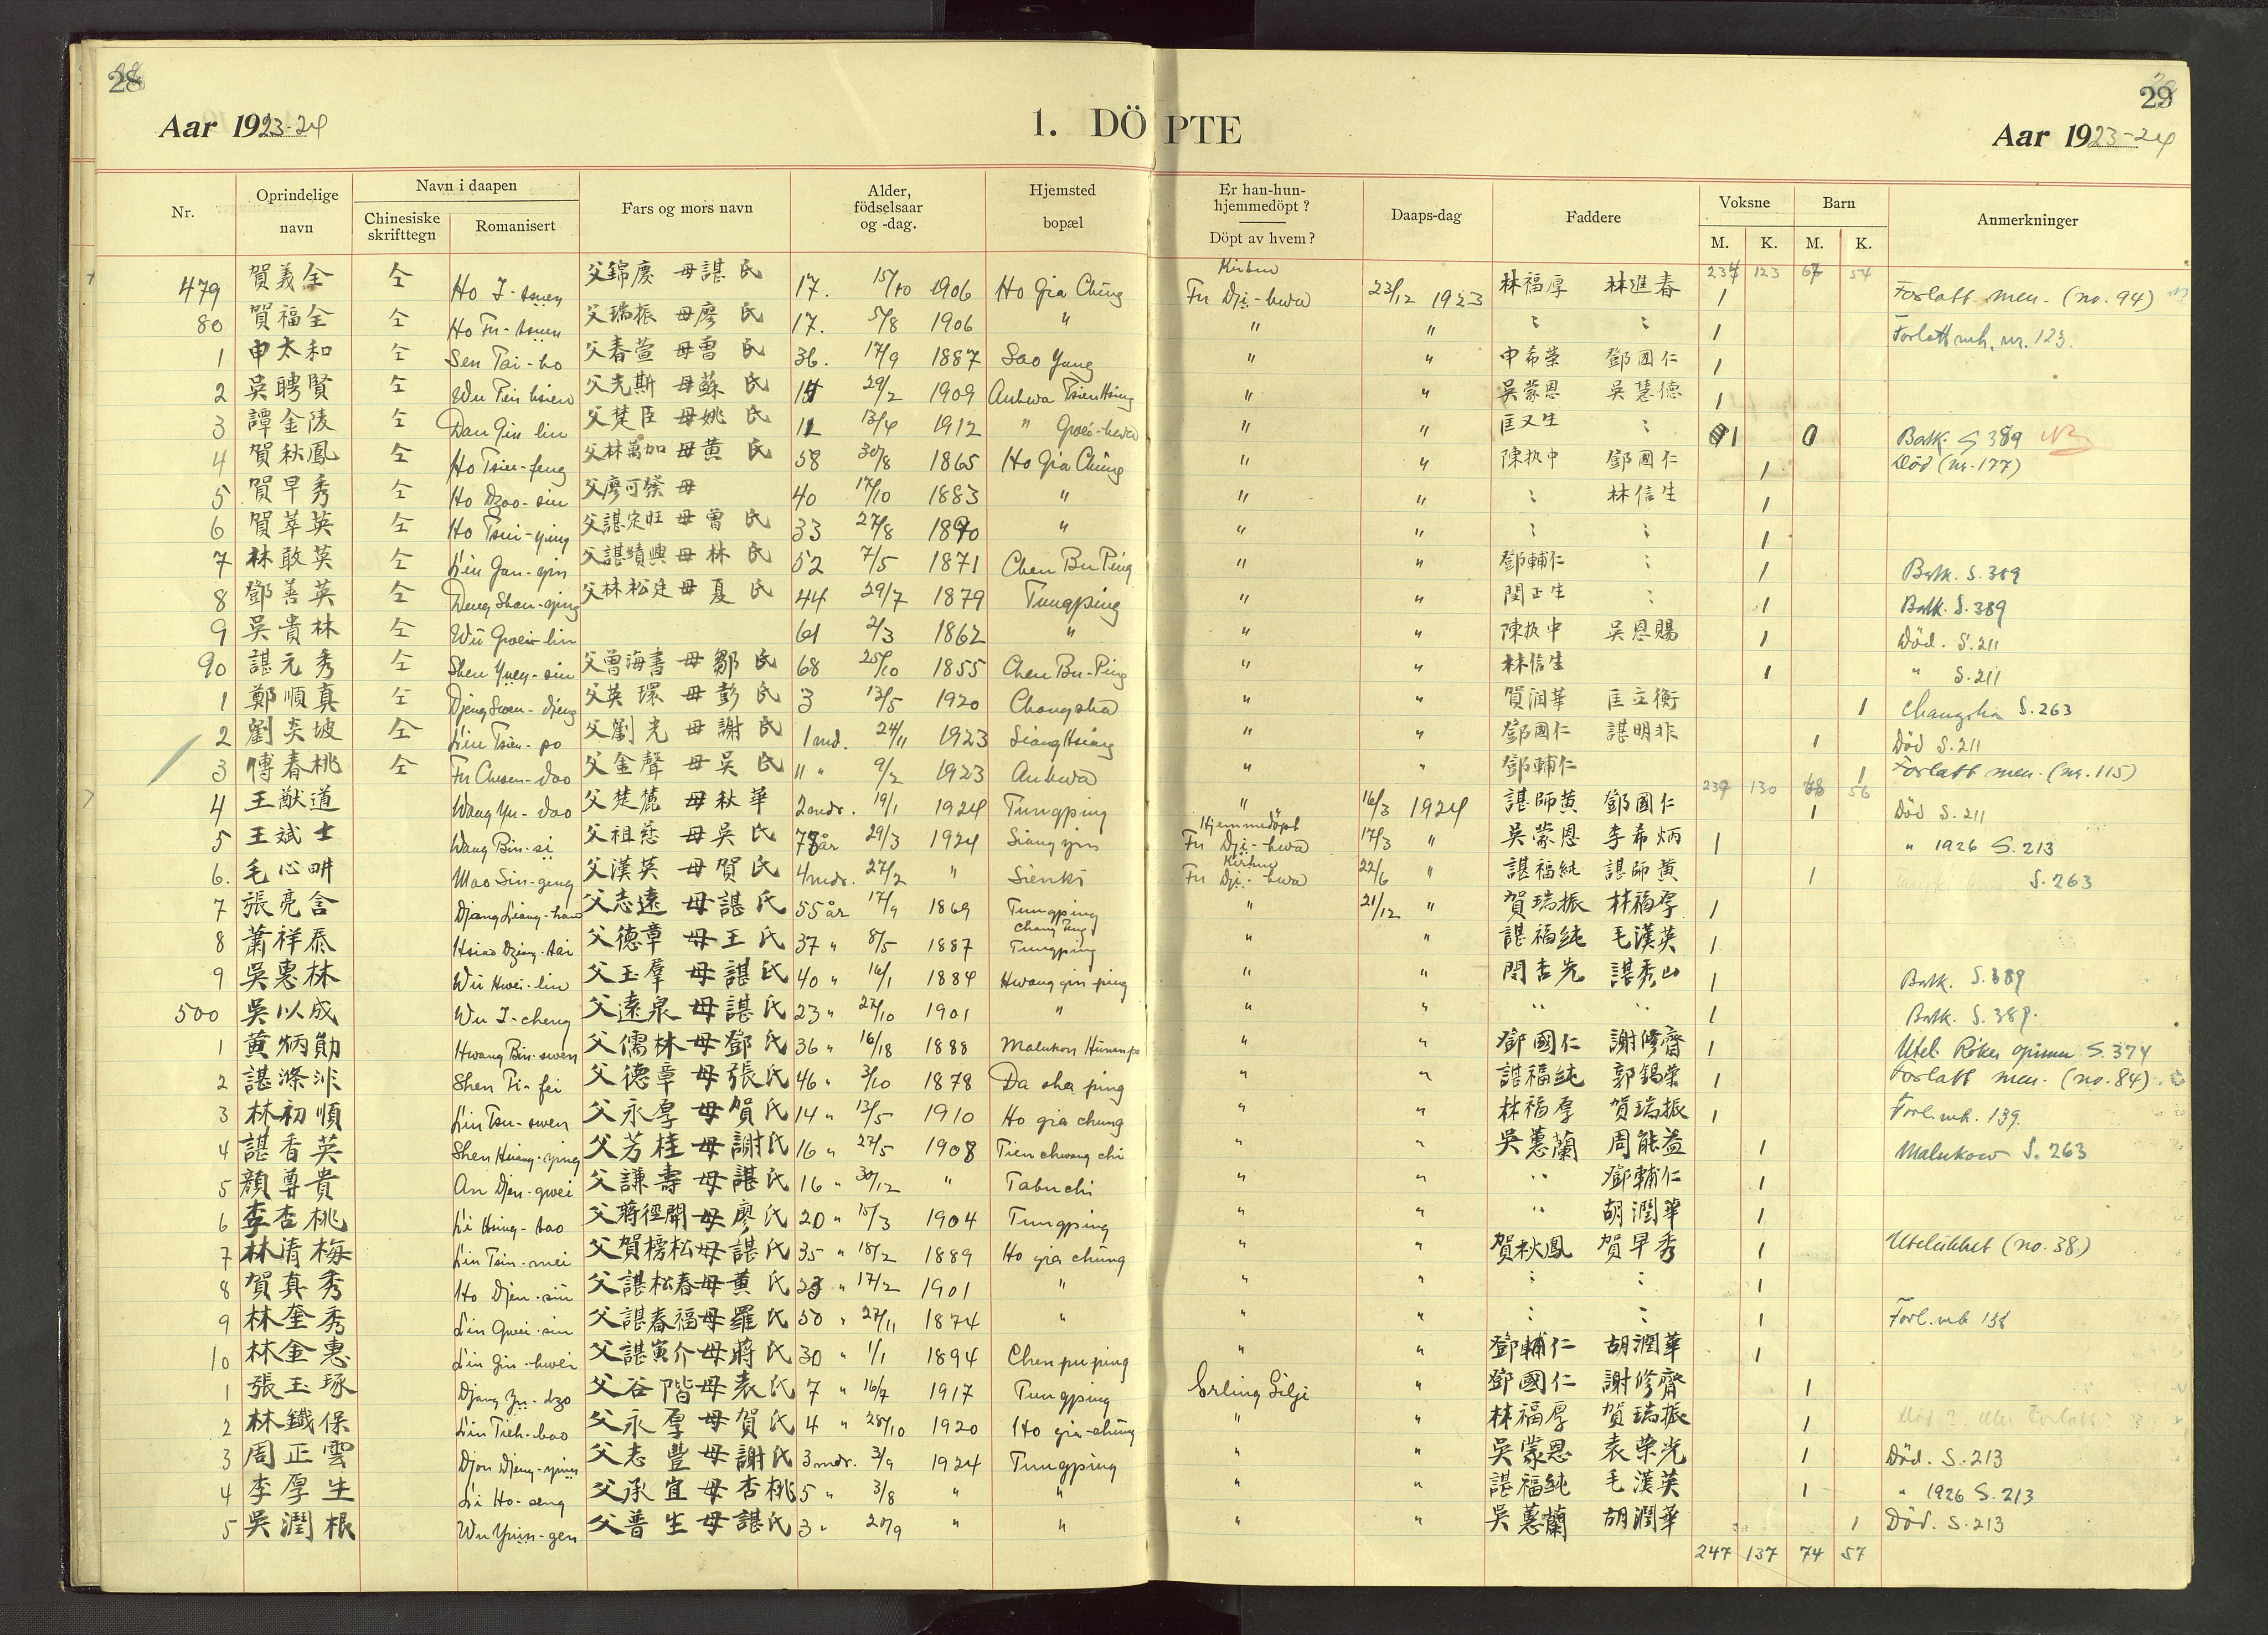 28
29
Aar 1923-24
1. DÖPTE
Aar 1923-24
Nr. Oprindelige navn Navn i daapen Chinesiske skrifttegn Romanisert Fars og mors navn Alder, födselsaar og -dag. Hjemsted bopæl Er han-hun-hjemmedöpt? Döpt av hvem? Daaps-dag Faddere Voksne M. K. Barn M. K. Anmerkninger
479 賀義全 仝 Ho I-tsuen 父錦慶 母諶氏 17. 15/10 1906 Ho Gia Chüng Kirken Fu Dji-hwa 23/12 1923 林福厚 林進春 1 Forlatt men. (no. 94)
80 賀福全 仝 Ho Fu-tsuen 父瑞振 母廖氏 17. 5/8 1906 " " " : : 1 Forlatt mh. nr. 123.
1 申太和 仝 Sen Tai-ho 父春萱 母曹氏 36. 17/9 1887 Sao Yang " " 申希榮 鄧國仁 1
2 吳聘賢 仝 Wu Pin hsien 父克斯 母蘇氏 14 29/2 1909 Anhwa Tsien Hsing " " 吳蒙恩 吳慧德 1
3 譚金陵 仝 Dan Gin lin 父楚臣 母姚氏 11 13/4 1912 " Gwei-hwa " " 匡又生 : 1 Batk. S 389 NB
4 賀秋鳳 仝 Ho Tsiu-feng 父林萬加 母黄氏 58 30/8 1865 Ho Gia Chüng " " 陳扱中 鄧國仁 1 Död (nr. 177)
5 賀早秀 仝 Ho Dzao-siu 父廖可發 母 40 17/10 1883 " " " : 林信生 1
6 賀萃英 仝 Ho Tsui-ying 父諶定旺 母曾氏 33 27/8 1890 " " " : : 1
7 林敢英 仝 Lin Gan-yin 父諶績興 母林氏 52 7/5 1871 Chen Bu Ping " " 鄧輔仁 : 1 Batk. S. 389
8 鄧善英 仝 Deng Shan-ying 父林松廷 母夏氏 44 29/7 1879 Tungping " " 閔正生 : 1 Batk. S. 389
9 吳貴林 仝 Wü Gwei-lin 61 2/3 1862 " " " 陳扱中 吳恩賜 1 Död. S. 211
90 諶元秀 仝 Shen Yuen-siu 父曾海書 母鄒氏 68 25/10 1855 Chen Bu-Ping " " 林信生 1 " S. 211
1 鄭順真 仝 Djeng Swen-djeng 父英環 母彭氏 3 13/5 1920 Changsha " " 賀潤華 匡立衡 1 Changsha S. 263
2 劉炎坡 仝 Liu Tsien-po 父劉光 母謝氏 1 md. 24/11 1923 Siang Hsiang " " 鄧國仁 諶明非 1 Död S. 211
3 傅春桃 仝 Fu Chwen-dao 父金聲 母吳氏 11 " 9/2 1923 Anhwa " " 鄧輔仁 1 Forlatt men. (nr. 115)
4 王猷道 Wang Yu-dao 父楚蔍 母秋華 2 mdr. 19/1 1924 Tungping " 16/3 1924 諶師黄 鄧國仁 1 Död S. 211
5 王斌士 Wang Bin-si 父祖慈 母吳氏 år 29/3 1924 Siang yin Hjemmedöpt Fu Dji-hwa 17/3 " 吳蒙恩 李希炳 1 " 1926 S. 213
6. 毛心畊 Mao Sin-geng 父漢英 母賀氏 4 mdr. 27/2 " Sienki Kirken Fu Dji-hwa 22/6 " 諶福純 諶師黄 1 S. 263
7 張亮含 Djang Liang-han 父志遠 母諶氏 55 år 17/9 1869 Tungping " 21/12 " 賀瑞振 林福厚 1
8 蕭祥泰 Hsiao Dziang-tai 父德章 母王氏 37 " 8/5 1887 Chang Tang Tungping " " 諶福純 毛漢英 1
9 吳惠林 Wü Hwei-lin 父玉羣 母諶氏 40 " 16/1 1884 Hwang gin ping " " 閔杏光 諶秀山 1 Batk. S. 389
500 吳以成 Wu I-cheng 父遠泉 母諶氏 23 " 27/10 1901 " " " " " 1 Batk. S. 389.
1 黄炳勛 Hwang Bin-swen 父儒林 母鄧氏 36 " 16/18 1888 Malukow Hunan " " 鄧國仁 謝修齊 1 Utel. Röker opium S. 374
2 諶滌非 Shen Ti-fei 父德章 母張氏 46 " 3/10 1878 Da sha ping " " 諶福純 郭錫榮 1 Forlatt men. (no. 84)
3 林初順 Lin Tsu-swen 父永厚 母賀氏 14 " 13/5 1910 Ho gia chung " " 林福厚 賀瑞振 1 Forl. mh. 139.
4 諶香英 Shen Hsiang-ying 父芳桂 母謝氏 16 " 27/5 1908 Tien chwang chi " " 吳蕙蘭 周能益 1 Malukow S. 263
5 顏尊貴 An Djen-gwei 父謙壽 母諶氏 16 " 30/12 " Tabuchi " " " 鄧輔仁 1
6 李杏桃 Li Hsing-tao 父蔣徑開 母廖氏 20 " 15/3 1904 Tungping " " " 胡潤華 1
7 林清梅 Lin Tsin-mei 父賀榜松 母諶氏 35 " 18/2 1889 Ho gia chüng " " 賀秋鳳 賀早秀 1 Utelukket (no. 38)
8 賀真秀 Ho Djen-siu 父諶松春 母黄氏 23 " 17/2 1901 " " " : : 1
9 林奎秀 Lin Gwei-siu 父諶春福 母羅氏 50 " 27/11 1874 " " " : : 1 Forl. mh 138
10 林金惠 Lin Gin-hwei 父諶寅介 母蔣氏 30 " 1/1 1894 Chen pu ping " " 鄧輔仁 胡潤華 1
1 張玉琢 Djang Yu-dzo 父谷階 母袁氏 7 " 16/7 1917 Tungping Erling Gilje " 鄧國仁 謝修齊 1
2 林鐵保 Lin Tieh-bao 父永厚 母賀氏 4 " 28/10 1920 Ho gia-chüng " " 林福厚 賀瑞振 1
3 周正雲 Djou Djeng-yuin 父志豐 母謝氏 3 mdr. 3/9 1924 Tungping " " 吳蒙恩 袁荣光 1 Död. S. 213
4 李厚生 Li Ho-seng 父承宜 母杏桃 5 " 3/8 " " " " 諶福純 毛漢英 1 " 1926 S. 213
5 吳潤根 Wu Yuin-gen 父普生 母諶氏 3 " 20/9 " " " " 吳蕙蘭 胡潤華 1 Död. S. 213
247 137 74 57